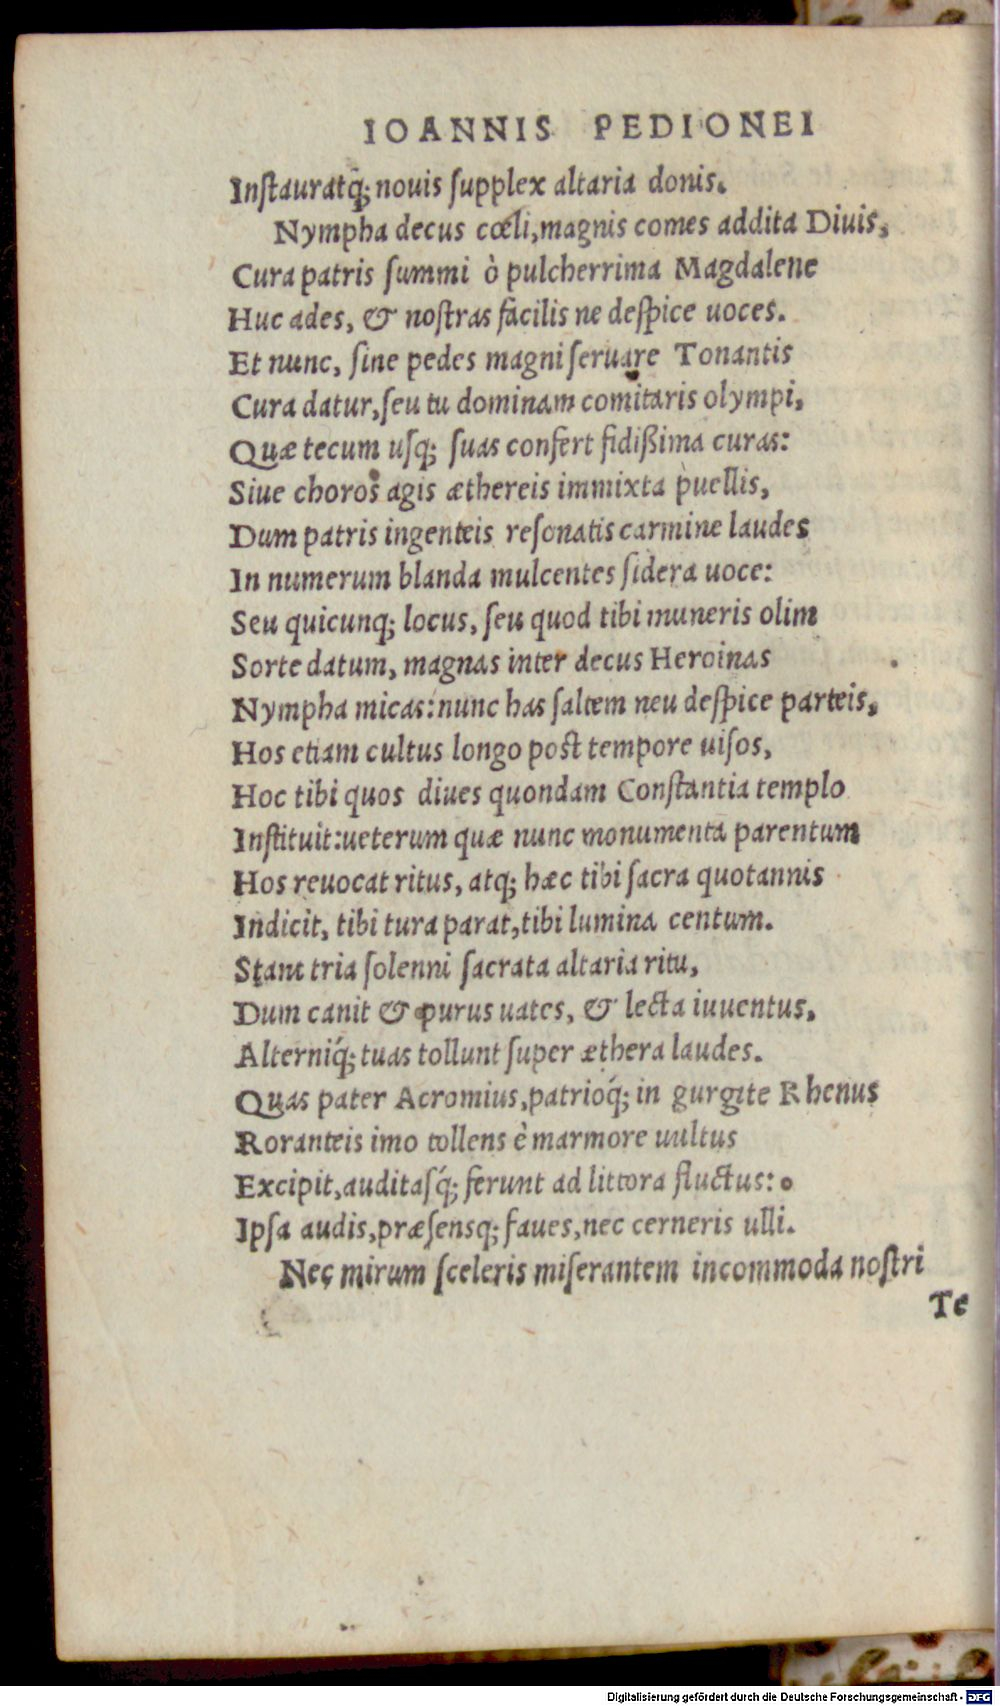 IOANNIS PEDIONEI
Inſtauratq́; nouis ſupplex altaria donis.
Nympha decus cœli, magnis comes addita Diuis,
Cura patris ſummi ò pulcherrima Magdalene
Huc ades, & noſtras facilis ne deſpice uoces.
Et nunc, ſine pedes magni ſeruare Tonantis
Cura datur, ſeu tu dominam comitaris olympi,
Quæ tecum uſq; ſuas confert fidißima curas:
Siue choros agis æthereis immixta puellis,
Dum patris ingenteis reſonatis carmine laudes
In numerum blanda mulcentes ſidera uoce:
Seu quicunq; locus, ſeu quod tibi muneris olim
Sorte datum, magnas inter decus Heroinas
Nympha micas: nunc has ſaltem neu deſpice parteis,
Hos etiam cultus longo poſt tempore uiſos,
Hoc tibi quos diues quondam Conſtantia templo
Inſtituit: ueterum quæ nunc monumenta parentum
Hos reuocat ritus, atq; hæc tibi ſacra quotannis
Indicit, tibi tura parat, tibi lumina centum.
Stant tria ſolenni ſacrata altaria ritu,
Dum canit & purus uates, & lecta iuuentus,
Alterniq́; tuas tollunt ſuper æthera laudes.
Quas pater Acromius, patrioq́; in gurgite Rhenus
Roranteis imo tollens è marmore uultus
Excipit, auditaſq́; ferunt ad littora fluctus:
Ipſa audis, præſensq; faues, nec cerneris ulli.
Nec mirum ſceleris miſerantem incommoda noſtri
Te
Digitalisierung gefördert durch die Deutsche Forschungsgemeinschaft - DFG